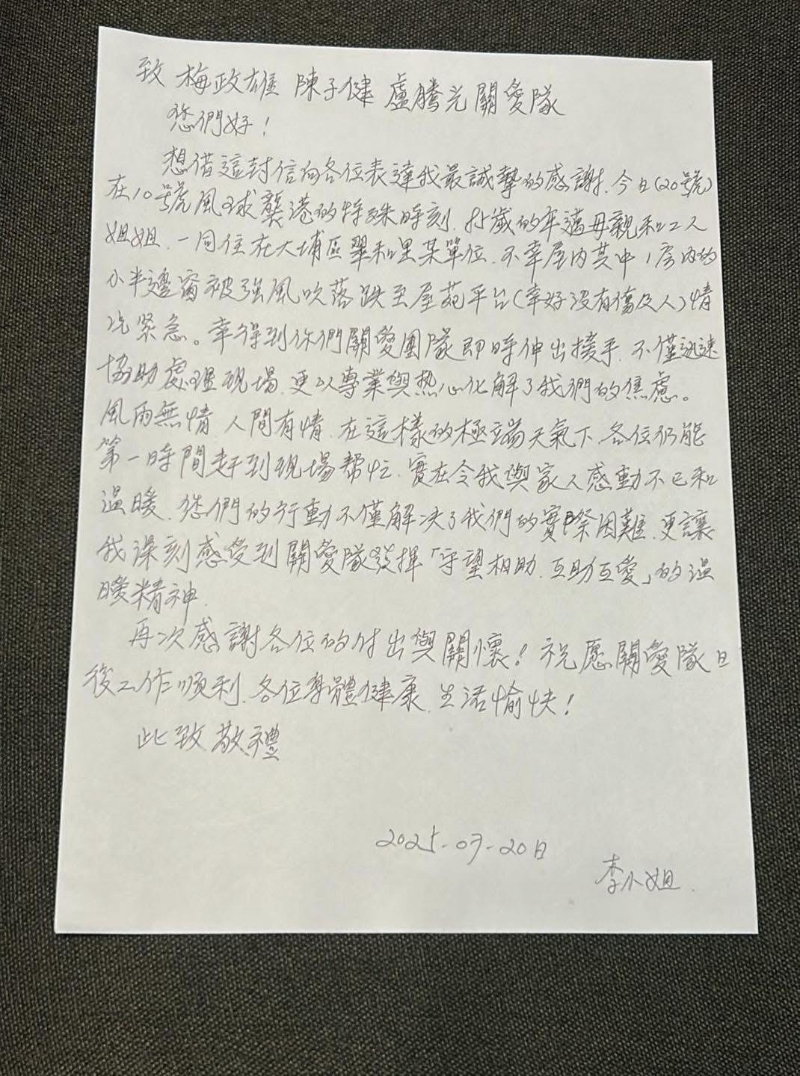 致 梅政雄 陳子健 盧騰光關愛隊
您們好！
想借這封信向各位表達我最誠摯的感謝. 今日(20號)
在10號風球襲港的特殊時刻. 歲的年邁母親和工人
姐姐. 一同住在大埔區翠和里某單位. 不幸屋內其中1房內的
小半邊窗被強風吹落跌至屋苑平台(幸好沒有傷及人)情
況緊急。幸得到你們關愛團隊即時伸出援手. 不僅迅速
協助處理現場. 更以專業與熱心化解了我們的焦慮。
風雨無情 人間有情. 在這樣的極端天氣下. 各位仍能
第一時間赶到現場幫忙. 實在令我與家人感動不已和
温暖. 您們的行動不僅解决了我們的實際困難. 更讓
我深刻感受到關愛隊發揮「守望相助. 互助互愛」的温
暖精神.
再次感謝各位的付出與關懷！祝愿關愛隊日
後工作順利. 各位身體健康. 生活愉快！
此致敬禮
2025-07-20日
李小姐.